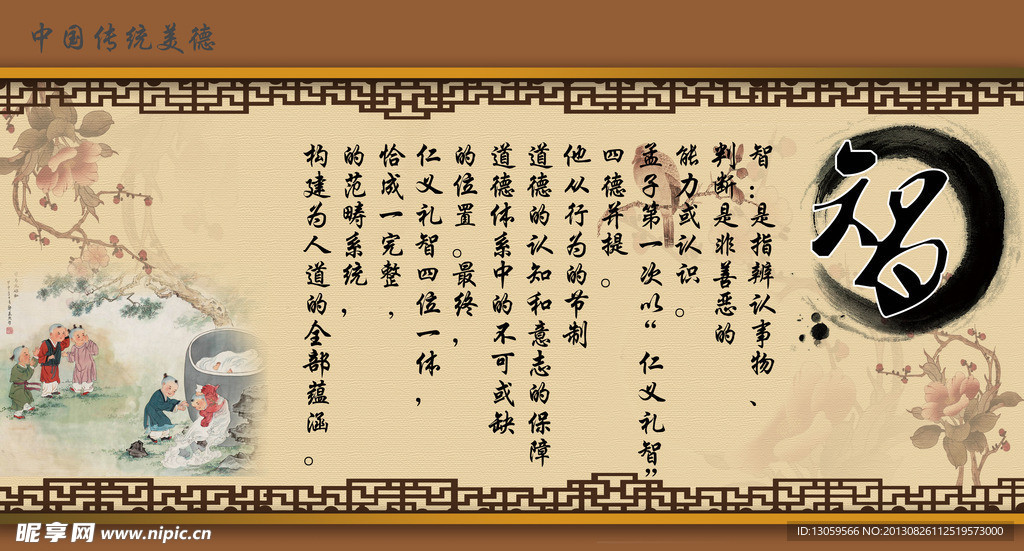 中国传统美德
智
智：是指辨认事物、
判断是非善恶的
能力或认识。
孟子第一次以“仁义礼智”
四德并提。
他从行为的节制
道德的认知和意志的保障
道德体系中的不可或缺
的位置。最终，
仁义礼智四位一体，
恰成一完整，
的范畴系统，
构建为人道的全部蕴涵。
昵享网 www.nipic.cn
ID:13059566 NO:20130826112519573000